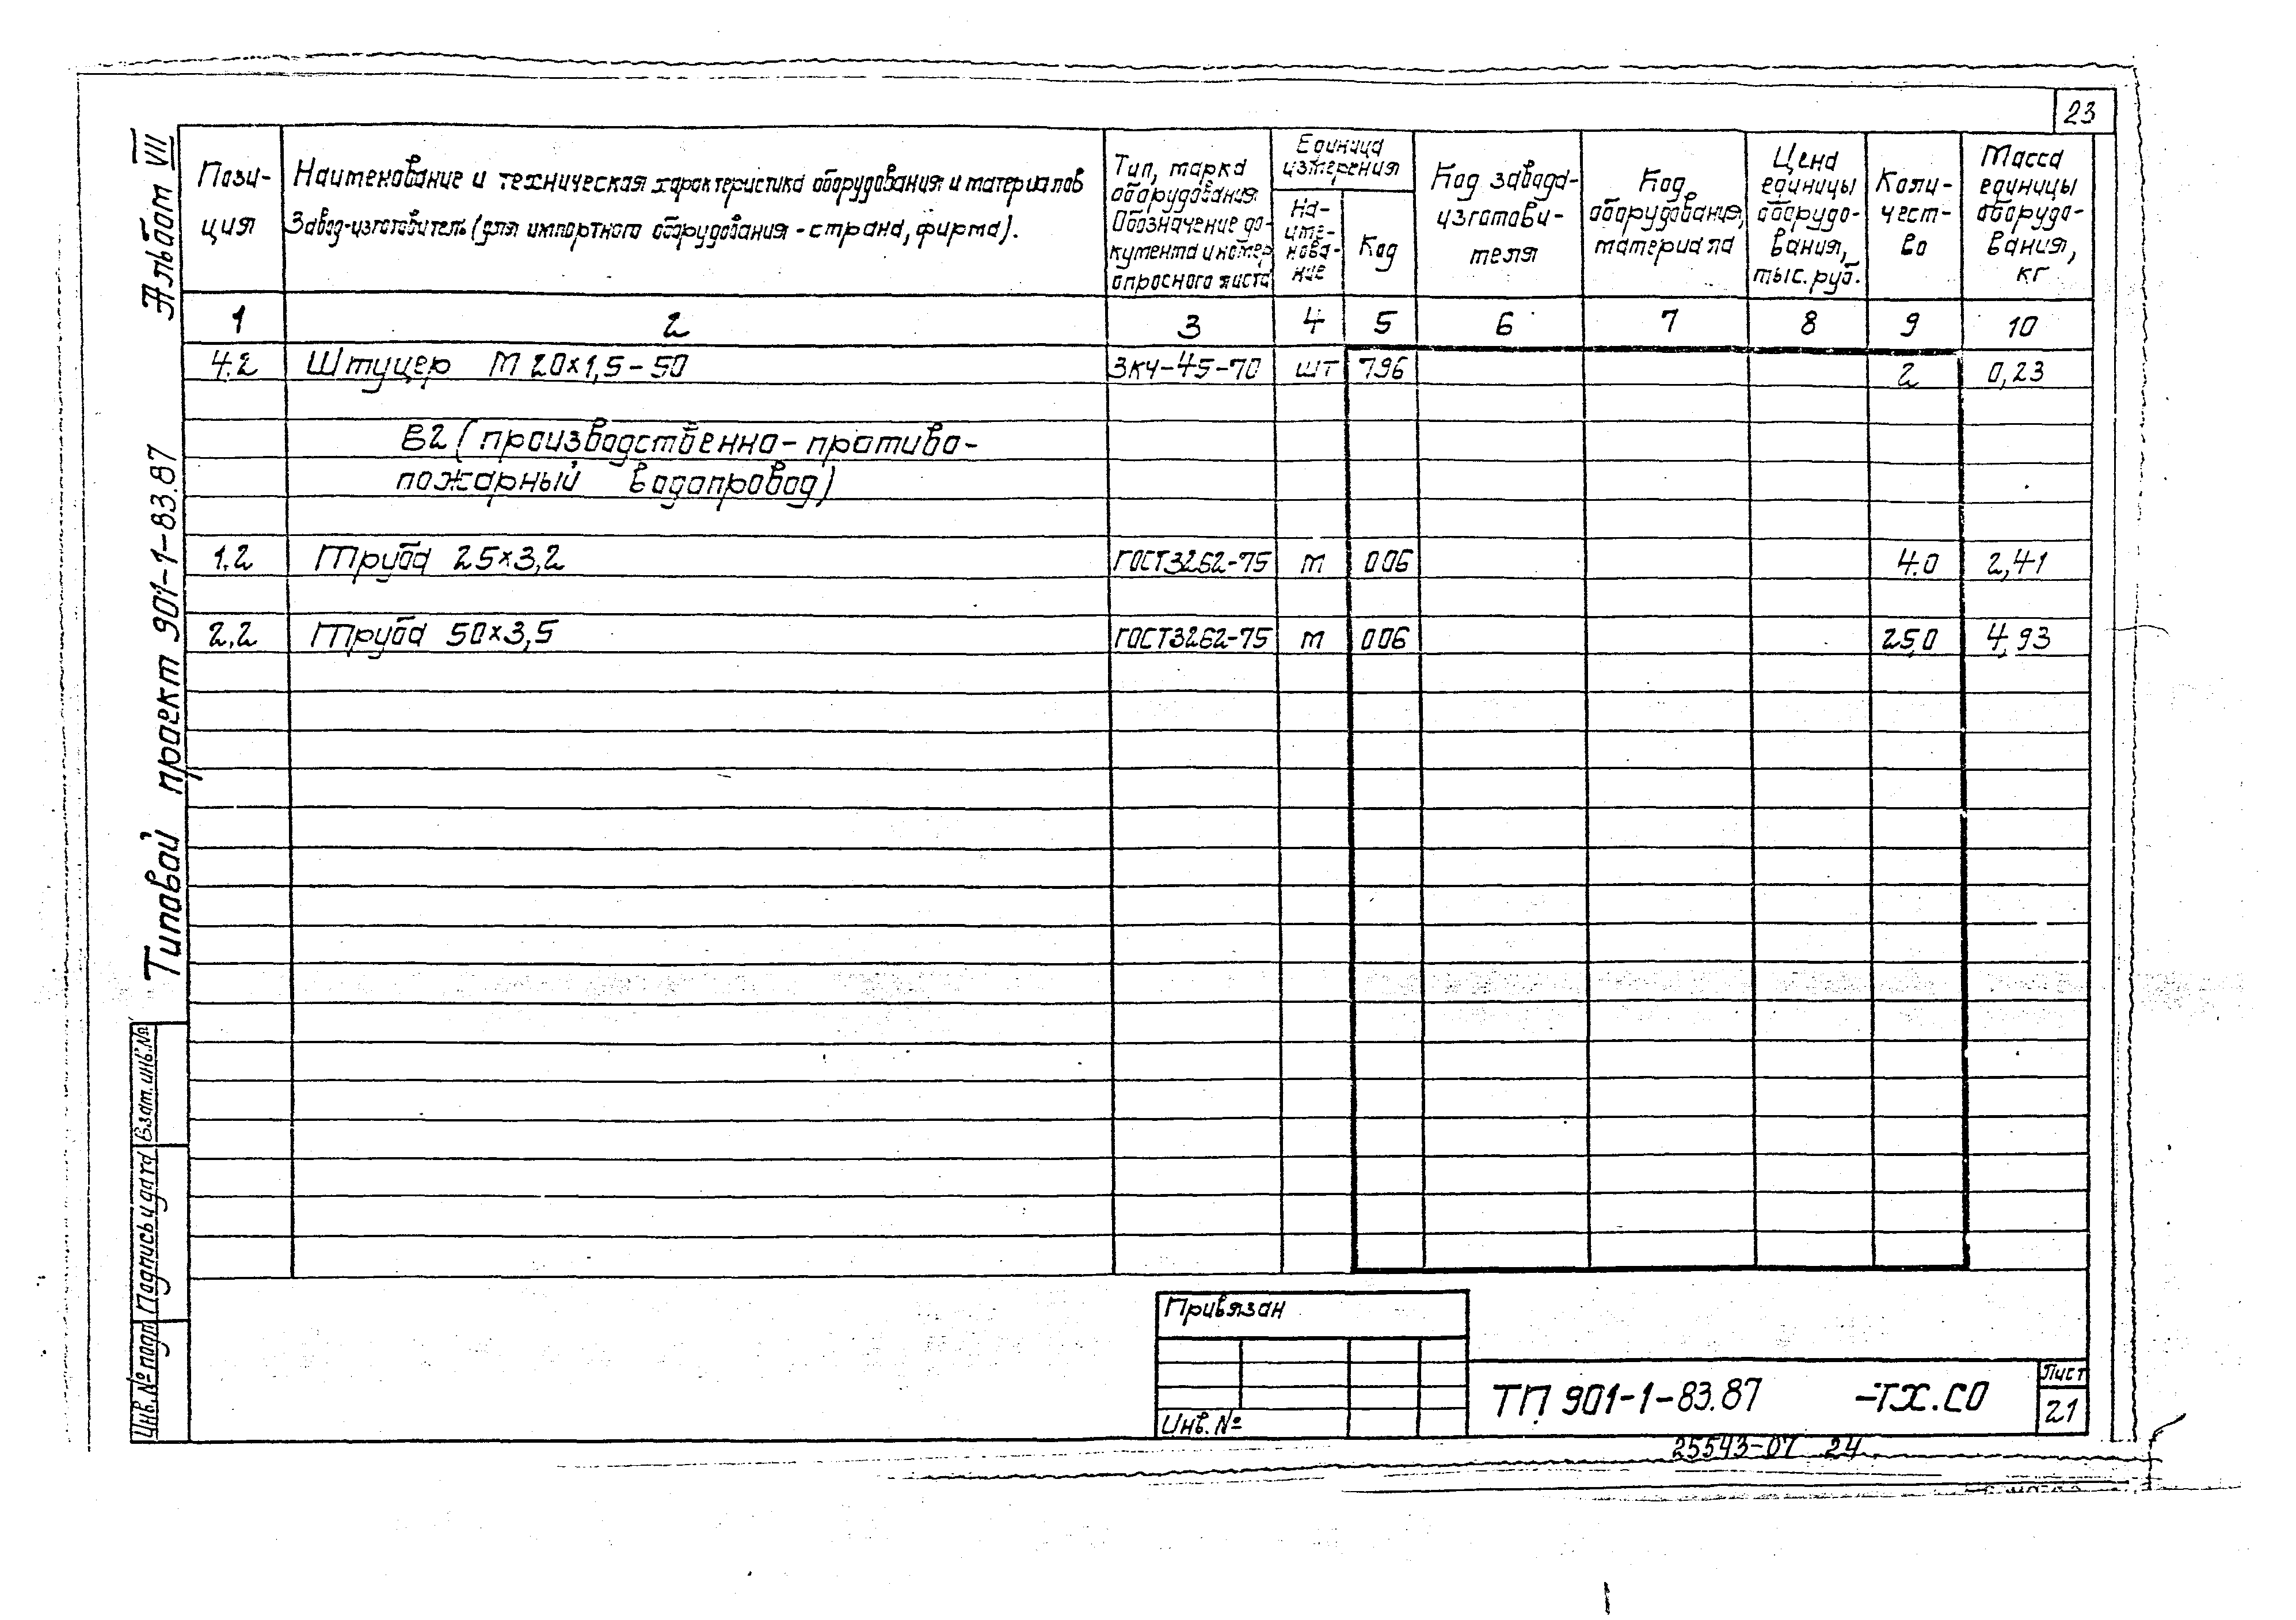 23
Альбом VII
Типовой проект 901-1-83.87
Пози-
ция
Наименование и техническая характеристика оборудования и материалов
Завод-изготовитель (для импортного оборудования - страна, фирма).
Тип, марка
оборудования.
Обозначение до-
кумента и номер
опросного листа
Единица
измерения
На-
име-
нова-
ние
Код
Код завода-
изготови-
теля
Код
оборудования,
материала
Цена
единицы
оборудо-
вания,
тыс. руб.
Коли-
чест-
во
Масса
единицы
оборудо-
вания,
кг
1 2 3 4 5 6 7 8 9 10
4.2 Штуцер М 20×1,5-50 ЗКЧ-45-70 шт 796 2 0,23
В2 (производственно-противо-
пожарный водопровод)
1.2 Труба 25×3,2 ГОСТ3262-75 м 006 4.0 2,41
2.2 Труба 50×3,5 ГОСТ3262-75 м 006 25,0 4,93
Взам. инв. №
Подпись и дата
Инв. № подл
Привязан
Инв. №
ТП 901-1-83.87 -ТХ.СО
Лист
21
25543-07 24